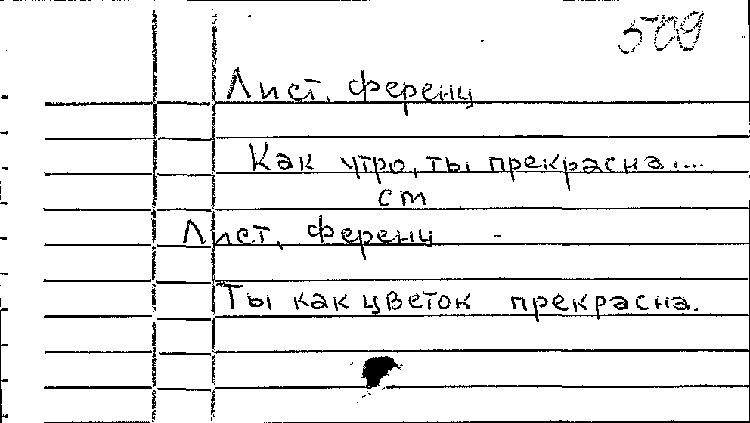 509
Лист, Ференц
Как утро, ты прекрасна...
см
Лист, Ференц
Ты как цветок прекрасна.